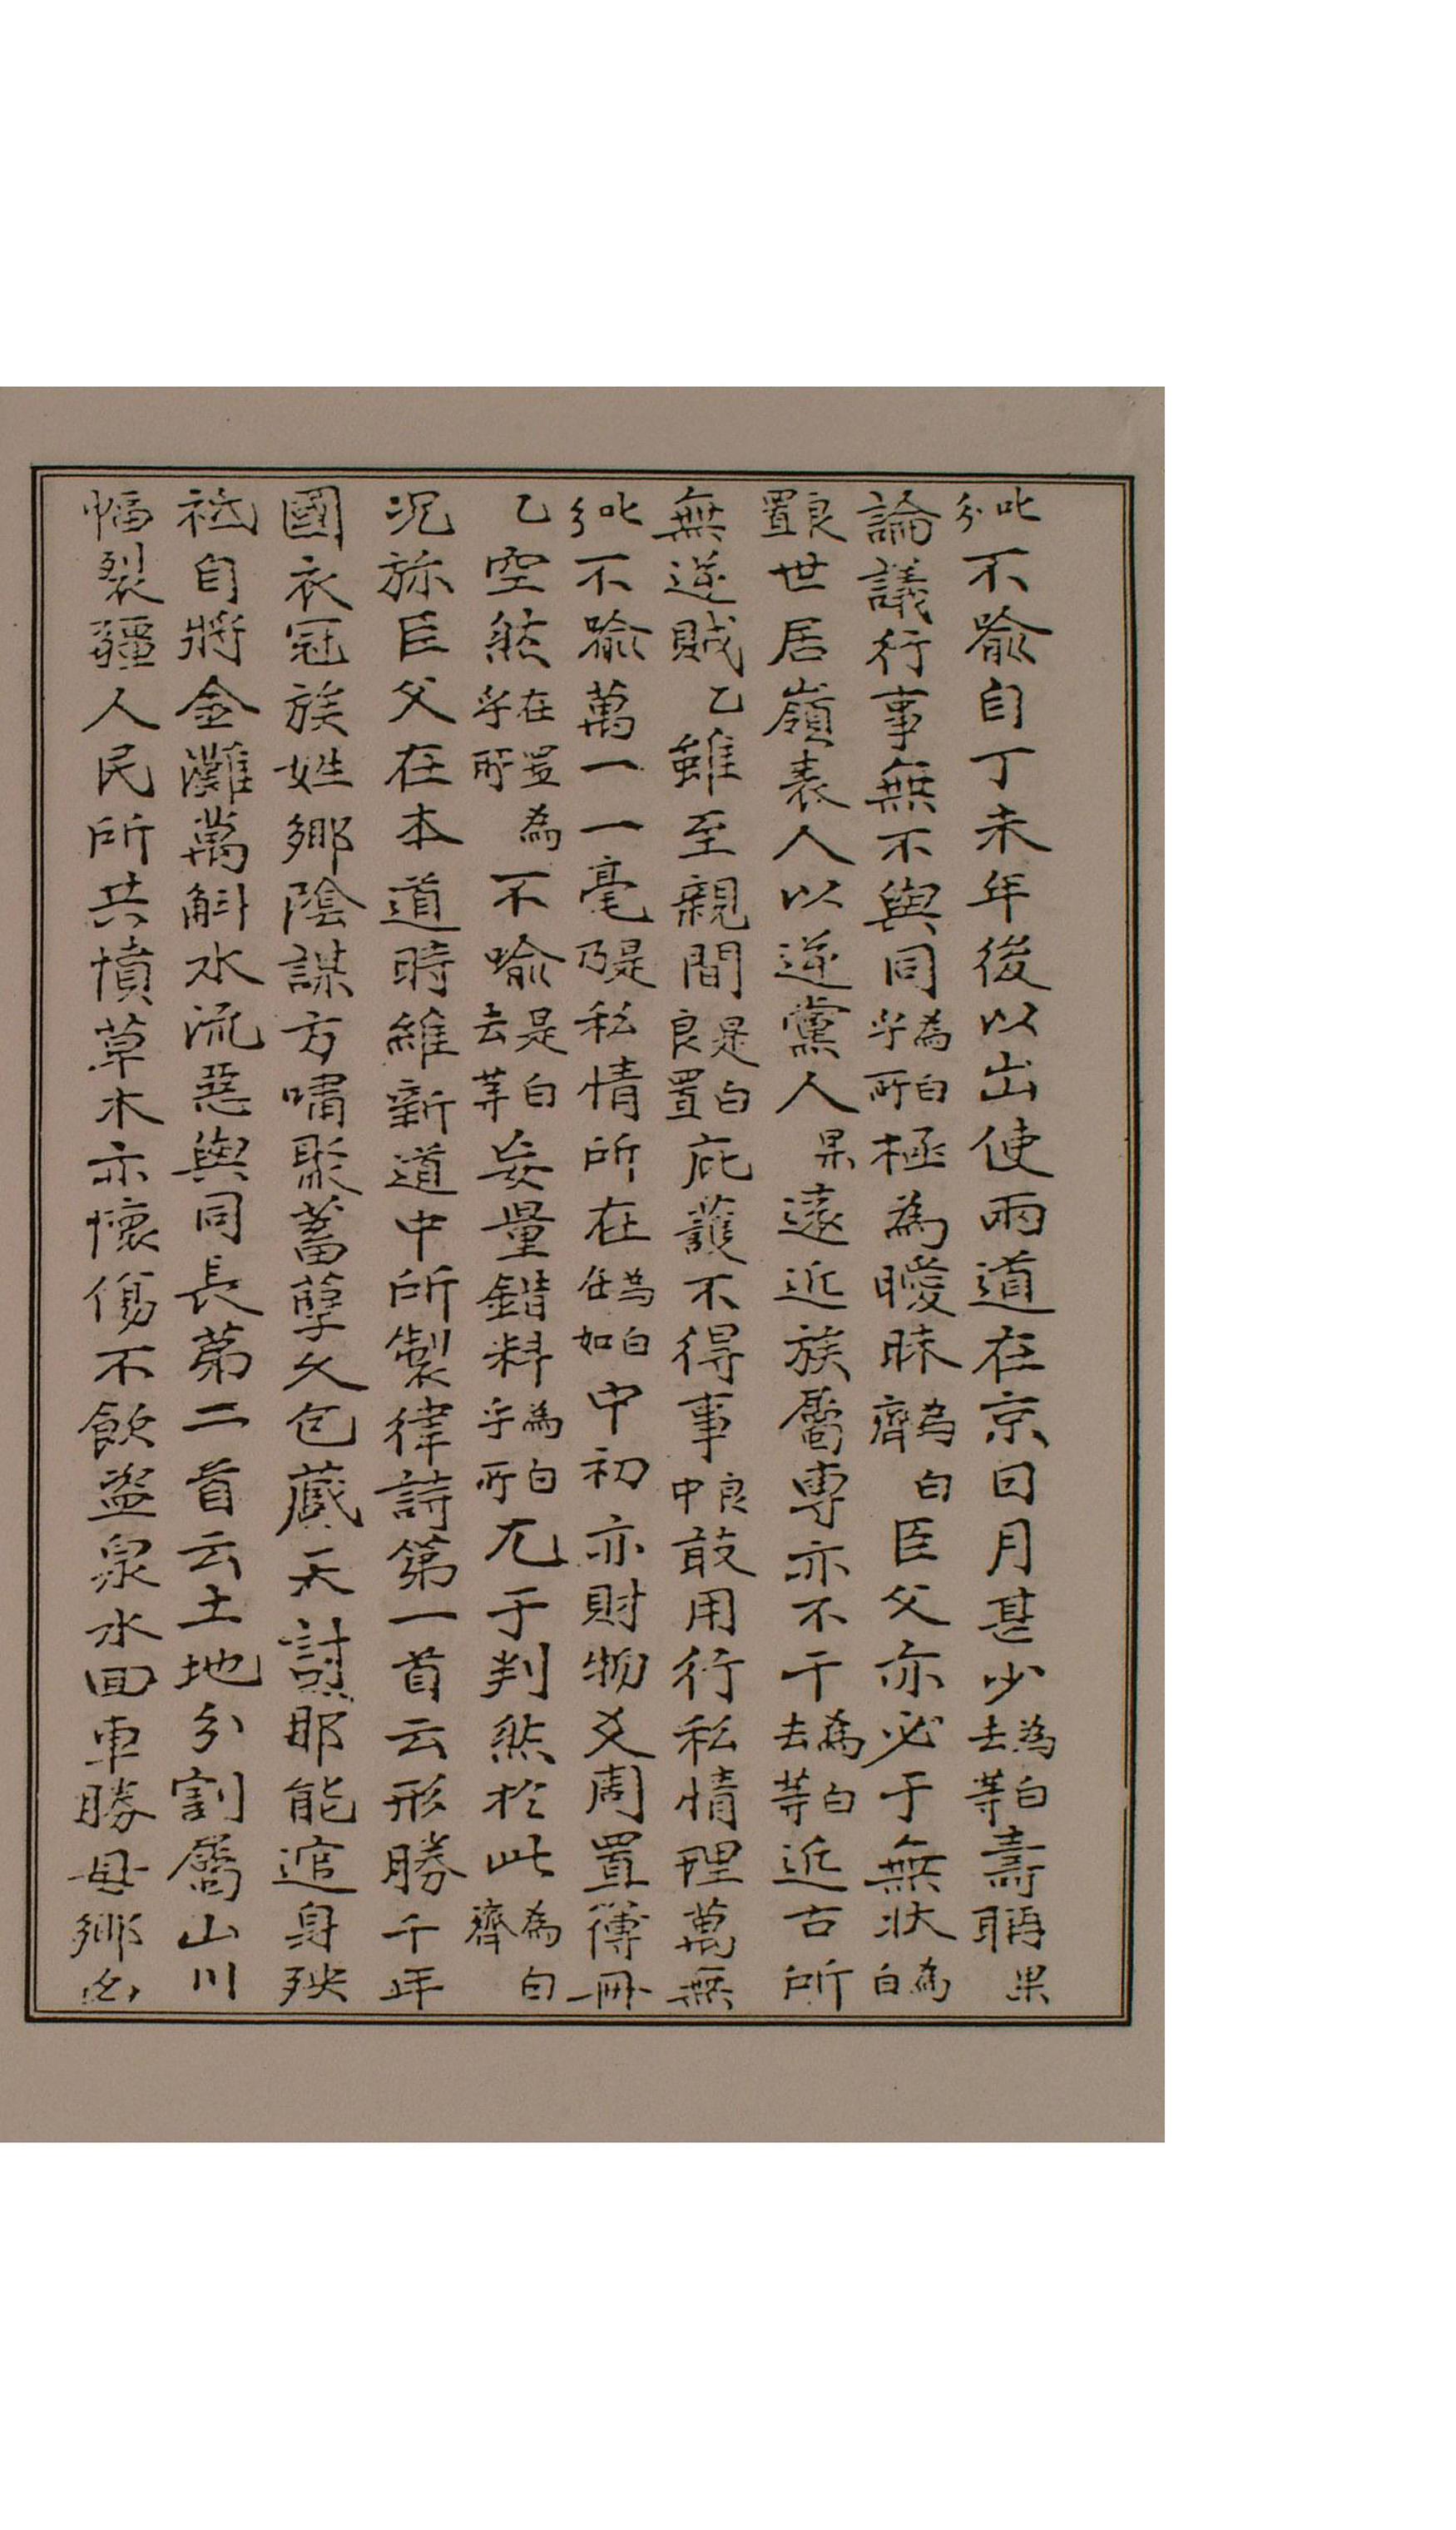 叱分不喩自丁未年後以出使兩道在京日月甚少爲白去等壽聃果
論議行事無不與同爲白乎所極爲曖昧爲白齊臣父亦必于無狀爲白
良置世居嶺表人以逆黨人果遠近族屬專亦不干爲白去等近古所
無逆賊乙雖至親間是白良置庇護不得事良中敢用行私情理萬無
叱分不喩萬一一毫乃是私情所在爲白在如中初亦財物爻周置簿冊
乙空然在置乎所爲不喩是白去等妄量錯料爲白乎所尤于判然於此爲白齊
况旀臣父在本道時維新道中所製律詩第一首云形勝千年
國衣冠族姓鄕陰謀方嘯聚蓄孼久包藏天討那能逭身殃
祗自將金灘萬斛水流惡與同長第二首云土地分割屬山川
幅裂疆人民所共憤草木亦懷傷不飮盜泉水回車勝母鄕